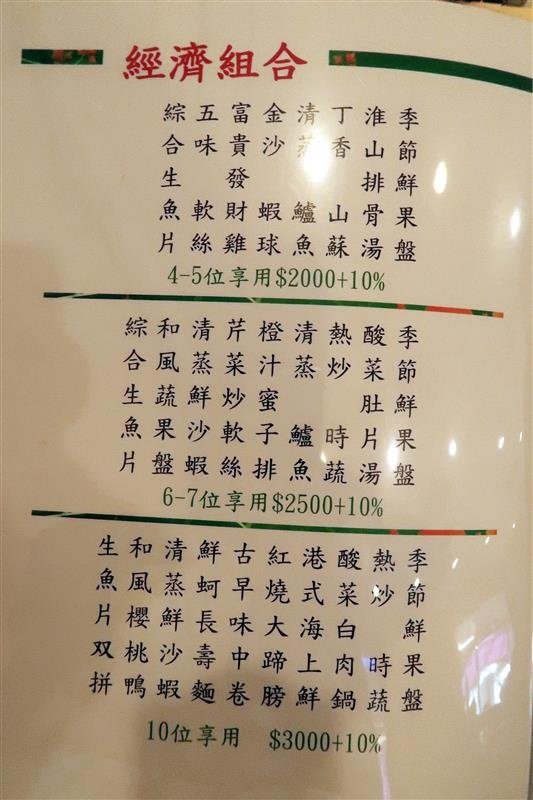 經濟組合
綜合生魚片
五味軟絲
富貴發財雞
金沙蝦球
清蒸鱸魚
丁香山蘇
淮山排骨湯
季節鮮果盤
4-5位享用$2000+10%
綜合生魚片
和風蔬果盤
清蒸鮮沙蝦
芹菜炒軟絲
橙汁蜜子排
清蒸鱸魚
熱炒時蔬
酸菜肚片湯
季節鮮果盤
6-7位享用$2500+10%
生魚片双拼
和風櫻桃鴨
清蒸鮮沙蝦
鮮蚵長壽麵
古早味中卷
紅燒大蹄膀
港式海上鮮
酸菜白肉鍋
熱炒時蔬
季節鮮果盤
10位享用 $3000+10%